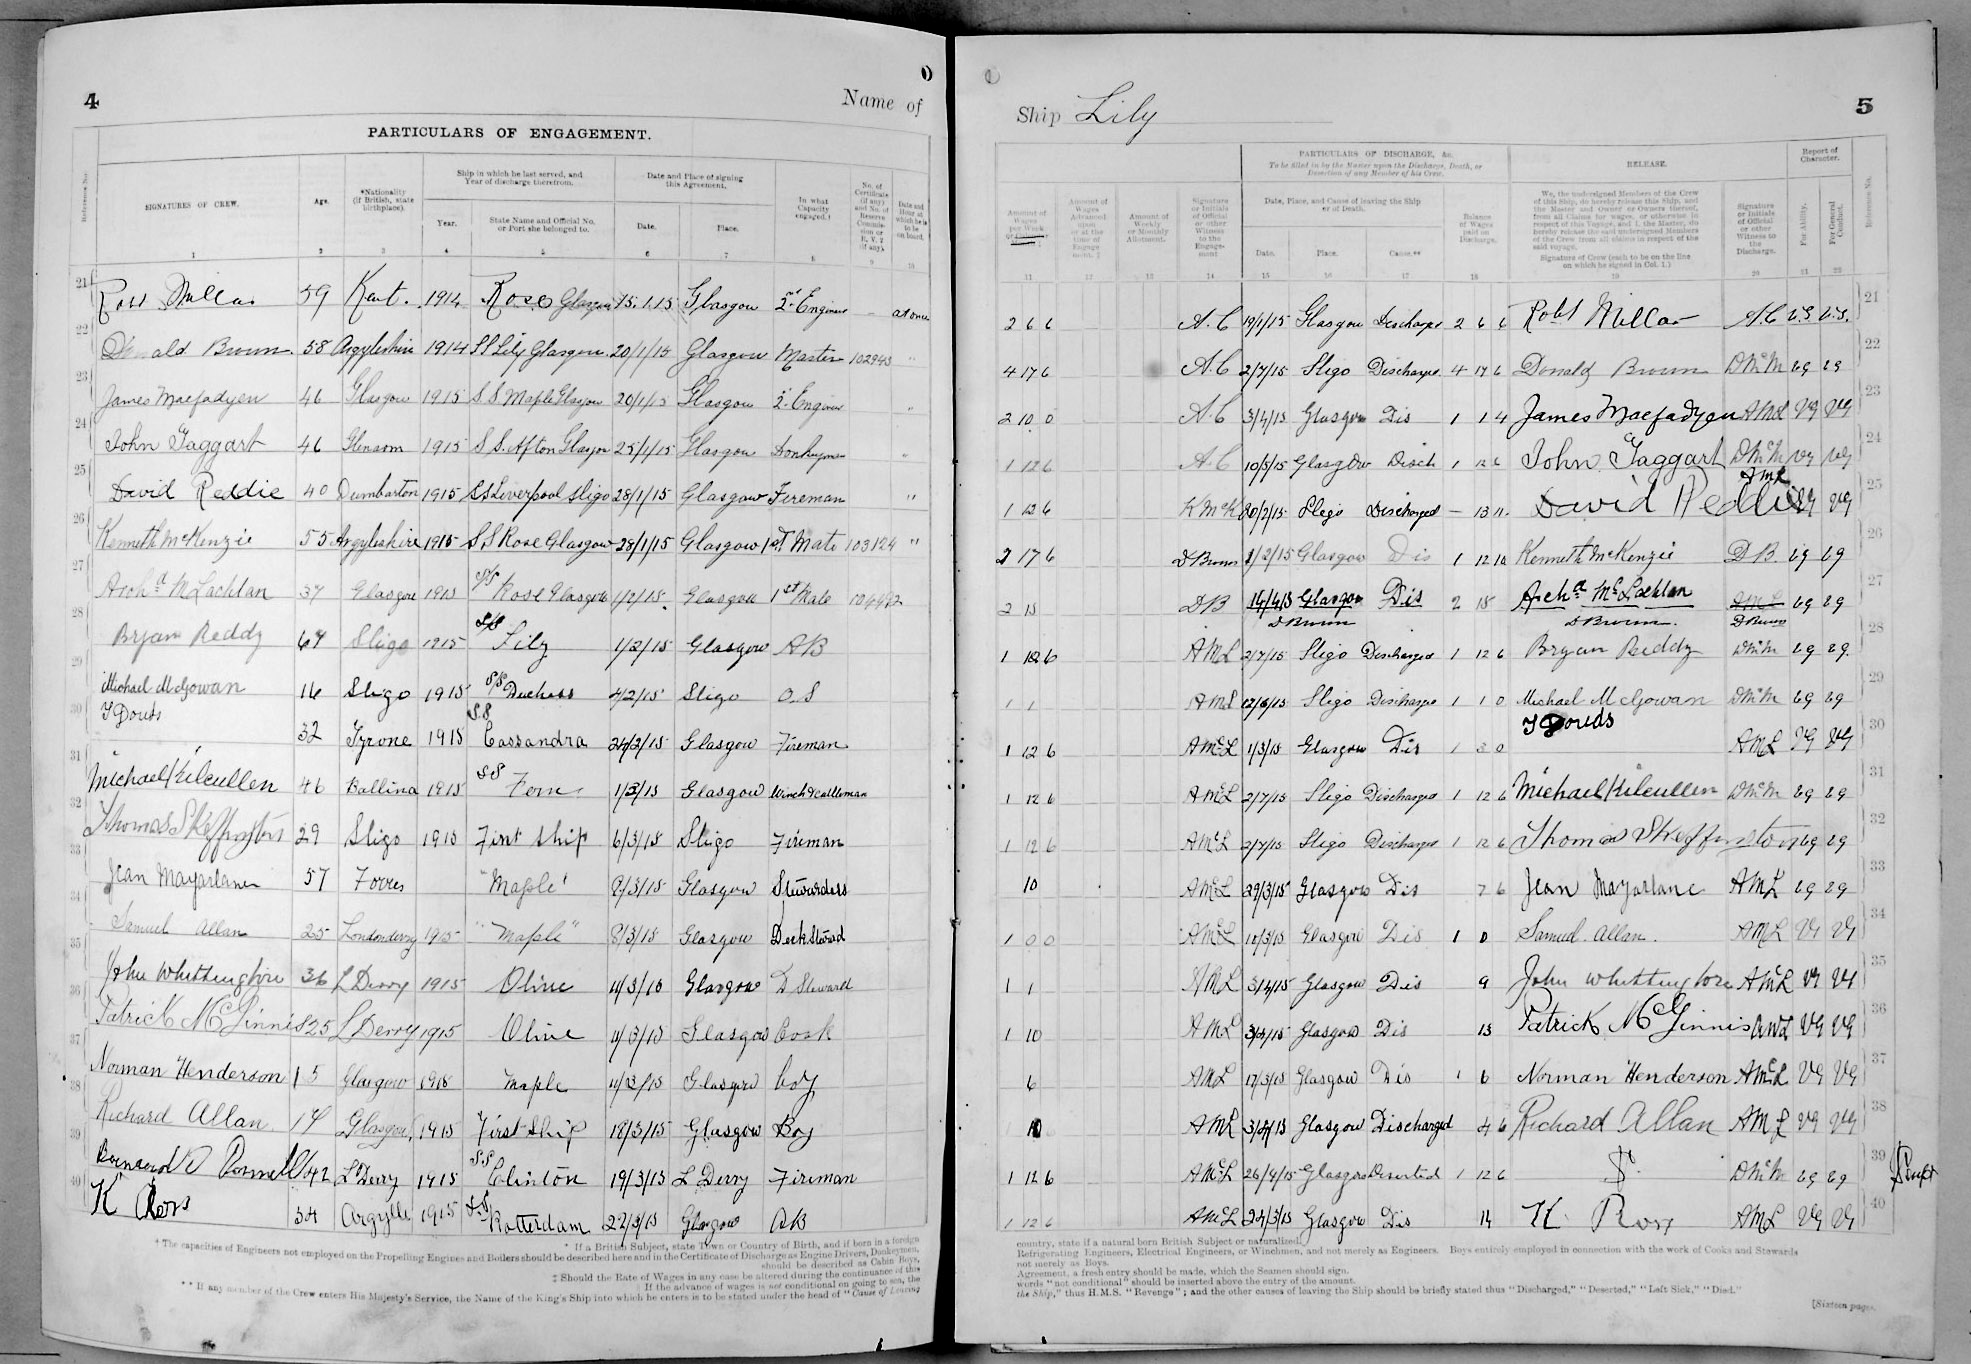 4
Name of
PARTICULARS OF ENGAGEMENT.
Reference No.
SIGNATURES OF CREW.
Age.
*Nationality (if British, state birthplace).
Ship in which he last served, and Year of discharge therefrom.
Year.
State Name and Official No. or Port she belonged to.
Date and Place of signing this Agreement.
Date.
Place.
In what Capacity engaged.†
No. of Certificate (if any) and No. of Reserve Commission or R.V. 2 (if any).
Date and Hour at which he is to be on board.
1 2 3 4 5 6 7 8 9 10
21 Robt Millar 59 Kent. 1914 Rose Glasgow 15.1.15 Glasgow 2nd Engineer - at once
22 Donald Brown 58 Argyleshire 1914 SS Lily Glasgow 20/1/15 Glasgow Master 102943 "
23 James Macfadyen 46 Glasgow 1915 SS Maple Glasgow 20/1/15 Glasgow 2nd Engineer "
24 John Taggart 46 1915 SS Afton Glasgow 25/1/15 Glasgow "
25 David Reddie 40 Dumbarton 1915 SS Liverpool Sligo 28/1/15 Glasgow Fireman "
26 Kenneth McKenzie 55 Argyleshire 1915 SS Rose Glasgow 28/1/15 Glasgow 1st Mate 103124 "
27 Archd McLachlan 37 Glasgow 1915 S/S Rose Glasgow 1/2/15. Glasgow 1st Mate
28 Bryan Reddy 67 Sligo 1915 S/S Lily 1/2/15 Glasgow AB
29 Michael McGowan 16 Sligo 1915 S/S Duchess 4/2/15 Sligo O.S
30 T Douds 32 Tyrone 1915 SS Cassandra 24/2/15 Glasgow Fireman
31 Michael Kilcullen 46 Ballina 1915 SS Fern 1/3/15 Glasgow Winch & Cattleman
32 Thomas Skeffington 29 Sligo 1915 First Ship 6/3/15 Sligo Fireman
33 Jean Macfarlane 57 Forres "Maple" 8/3/15 Glasgow Stewardess
34 Samuel Allan 25 Londonderry 1915 "Maple" 8/3/15 Glasgow Deck Steward
35 John Whittington 36 L Derry 1915 Olive 11/3/15 Glasgow D Steward
36 Patrick McGinnis 25 L Derry 1915 Olive 11/3/15 Glasgow Cook
37 Norman Henderson 15 Glasgow 1915 Maple 11/3/15 Glasgow boy
38 Richard Allan 17 Glasgow 1915 First Ship 18/3/15 Glasgow Boy
39 Bernard O Donnell 42 L Derry 1915 SS Clinton 19/3/15 L Derry Fireman
40 K Ross 34 Argylle 1915 S.S Rotterdam 22/3/15 Glasgow AB
* If a British Subject, state Town or Country of Birth, and if born in a foreign
† The capacities of Engineers not employed on the Propelling Engines and Boilers should be described here and in the Certificate of Discharge as Engine Drivers, Donkeymen,
should be described as Cabin Boys,
‡ Should the Rate of Wages in any case be altered during the continuance of this
‖ If the advance of wages is not conditional on going to sea, the
** If any member of the Crew enters His Majesty's Service, the Name of the King's Ship into which he enters is to be stated under the head of "Cause of Leaving
Ship Lily
5
Amount of Wages per Week
Amount of Wages Advanced upon or at the time of Engagement.‡
Amount of Weekly or Monthly Allotment.
Signature or Initials of Official or other Witness to the Engagement
PARTICULARS OF DISCHARGE, &c.
To be filled in by the Master upon the Discharge, Death, or Desertion of any Member of his Crew.
Date, Place, and Cause of leaving the Ship or of Death.
Date.
Place.
Cause.**
Balance of Wages paid on Discharge.
RELEASE.
We, the undersigned Members of the Crew of this Ship, do hereby release this Ship, and the Master and Owner or Owners thereof, from all Claims for wages, or otherwise in respect of this Voyage, and I, the Master, do hereby release the said undersigned Members of the Crew from all claims in respect of the said voyage.
Signature of Crew (each to be on the line on which he signed in Col. 1.)
Signature or Initials of Official or other Witness to the Discharge.
Report of Character.
For Ability.
For General Conduct.
Reference No.
11 12 13 14 15 16 17 18 19 20 21 22
2 6 6 A.C 19/1/15 Glasgow Discharge 2 6 6 Robt Millar A.C V.G. V.G. 21
4 17 6 A.C 2/7/15 Sligo Discharge 4 17 6 Donald Brown DMcM vg vg 22
2 10 0 A.C 3/4/15 Glasgow Dis 1 1 4 James Macfadyen AML VG VG 23
1 12 6 A.C 10/5/15 Glasgow Disch 1 12 6 John Taggart DMcM vg vg 24
1 12 6 K McK 20/2/15 Sligo Discharged - 13 11 David Reddie AML VG VG 25
2 17 6 D Brown 1/2/15 Glasgow Dis 1 12 10 Kenneth McKenzie D B. vg vg 26
2 15 DB 14/4/15 Glasgow Dis 2 15 Archd McLachlan AML vg vg 27
D Brown D Brown. D Brown
1 12 6 AML 2/7/15 Sligo Discharged 1 12 6 Bryan Reddy DMcM vg vg 28
1 1 AML 12/6/15 Sligo Discharge 1 1 0 Michael McGowan DMcM vg vg 29
1 12 6 AMcL 1/3/15 Glasgow Dis 1 3 0 T Douds AML VG VG 30
1 12 6 AMcL 2/7/15 Sligo Discharge 1 12 6 Michael Kilcullen DMcM vg vg 31
1 12 6 AMcL 2/7/15 Sligo Discharge 1 12 6 Thomas Skeffington vg vg 32
10 AMcL 29/3/15 Glasgow Dis 7 6 Jean Macfarlane AML vg vg 33
1 0 0 AMcL 12/3/15 Glasgow Dis 1 0 Samuel Allan. AML VG VG 34
1 1 AML 3/4/15 Glasgow Dis 9 John Whittington AMcL VG VG 35
1 10 AML 3/4/15 Glasgow Dis 15 Patrick McGinnis AML VG VG 36
6 AML 17/3/15 Glasgow Dis 6 Norman Henderson AMcL VG VG 37
10 AML 3/4/15 Glasgow Discharged 4 6 Richard Allan AML VG VG 38
1 12 6 AMcL 26/4/15 Glasgow Deserted 1 12 6 DMcM vg vg 39
1 12 6 AMcL 24/3/15 Glasgow Dis 14 K Ross AML VG VG 40
country, state if a natural born British Subject or naturalized.
Refrigerating Engineers, Electrical Engineers, or Winchmen, and not merely as Engineers. Boys entirely employed in connection with the work of Cooks and Stewards
not merely as Boys.
Agreement, a fresh entry should be made, which the Seamen should sign.
words "not conditional" should be inserted above the entry of the amount.
the Ship," thus H.M.S. "Revenge"; and the other causes of leaving the Ship should be briefly stated thus "Discharged," "Deserted," "Left Sick," "Died."
[Sixteen pages.